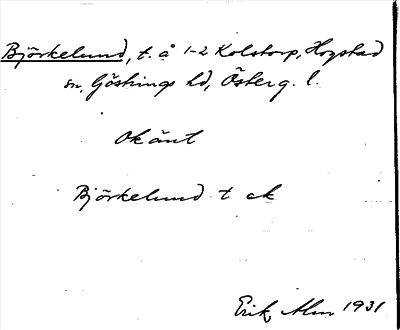 Björkelund, t. å 1-2 Kolstorp, Hogstad
sn, Göstrings hd, Österg. l.
Okänt
Björkelund t ek
Erik Alm 1931